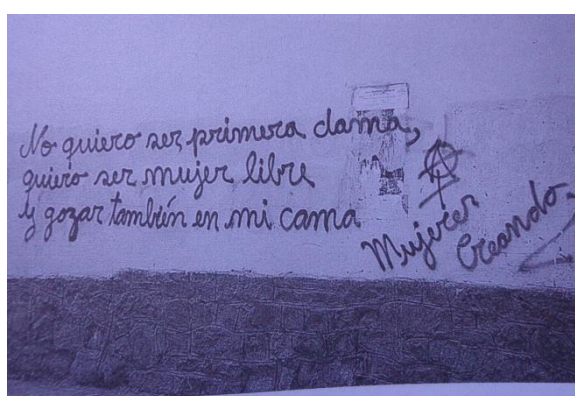 No quiero ser primera dama,
quiero ser mujer libre
y gozar también en mi cama
Mujeres
Creando.